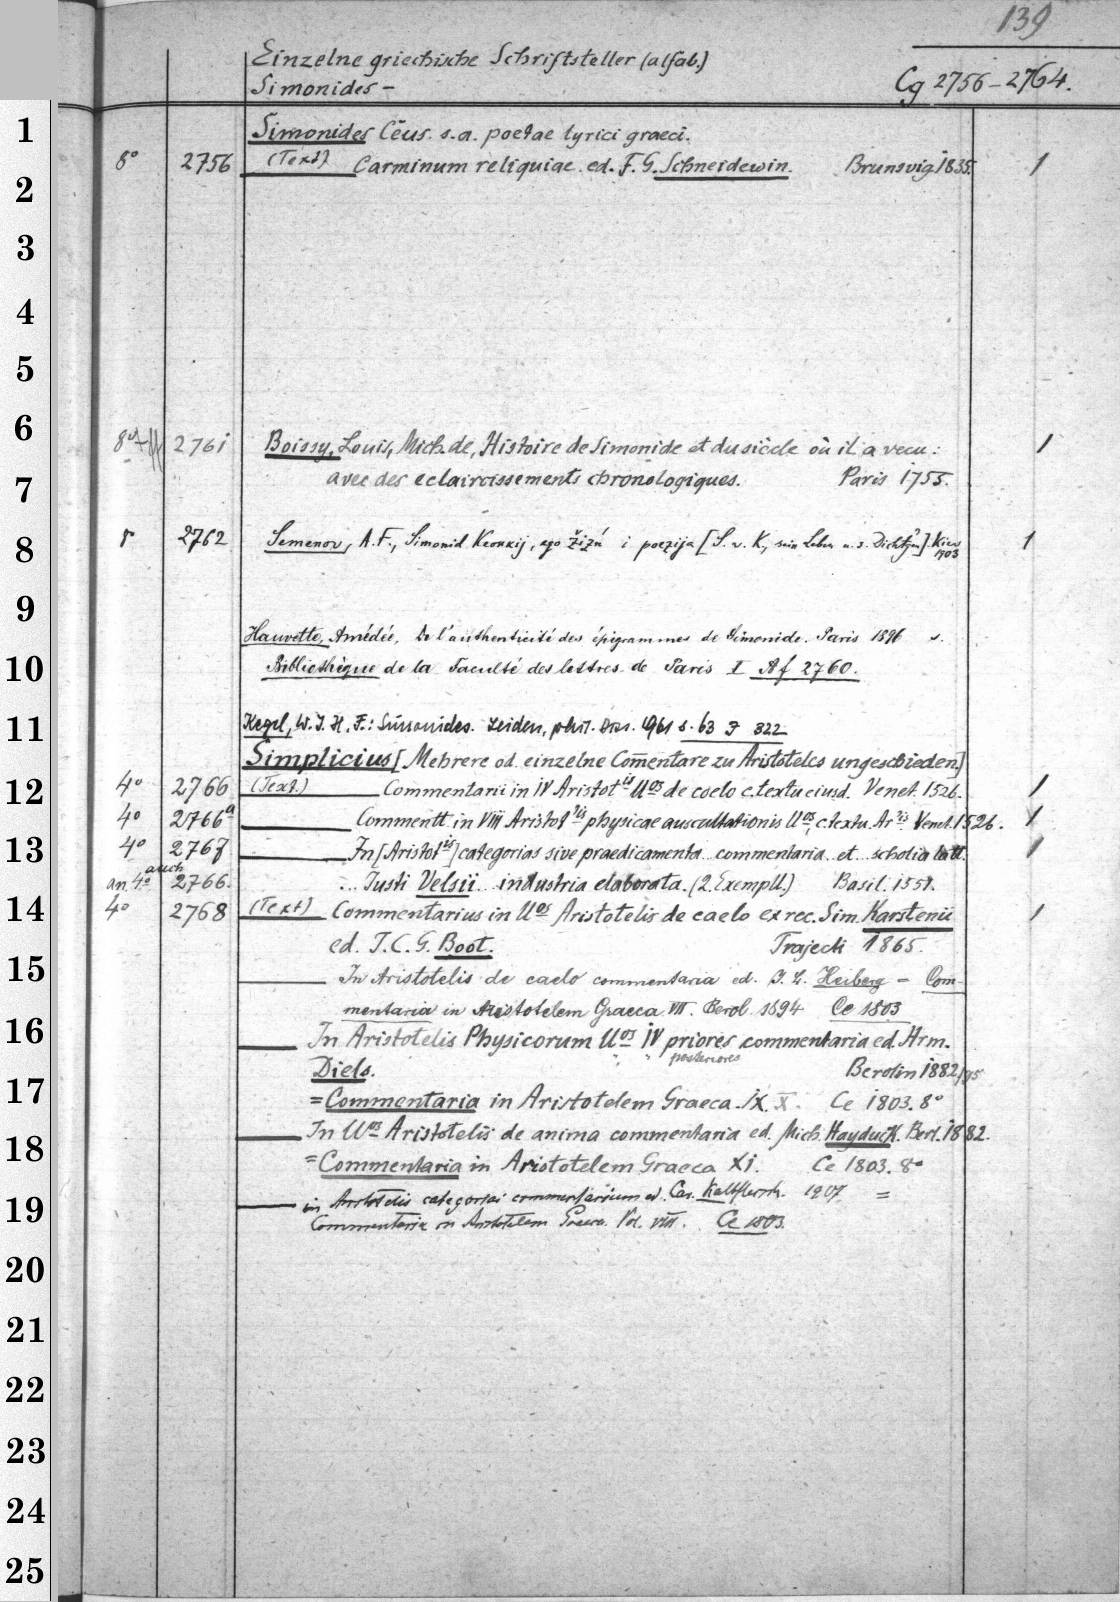 139
Einzelne griechische Schriftsteller (alfab.)
Simonides - Cg 2756-2764.
1
Simonides Cēus. s. a. poetae lyrici graeci.
8° 2756 (Text) Carminum reliquiae. ed. F. G. Schneidewin. Brunsvig. 1835. 1
2
3
4
5
6
8° 2761 Boissy, Louis, Mich. de, Histoire de Simonide et du siècle où il a vecu: 1
7
avec des eclaircissements chronologiques. Paris 1755.
8
8 2762 Semenov, A. F., Simonid Keosskij, ego žizń i poezija [S. v. K., sein Leben u. s. Dichtgn]. Kiew 1903 1
9
Hauvette, Amédée, De l'authenticité des épigrammes de Simonide. Paris 1896 s.
10
Bibliothèque de la Faculté des lettres de Paris I Af 2760.
11
Kegel, W. J. H. F.: Simonides. Leiden, phil. Diss. 1961 s. 63 P 322
Simplicius [Mehrere od. einzelne Comentare zu Aristoteles ungeschieden]
12
4° 2766 (Text.) Commentarii in IV Aristot is ll os de coelo c. textu eiusd. Venet. 1526. 1
4° 2766a Commentt. in VIII Aristot lis physicae auscultationis ll os, c. textu Ar lis Venet. 1526. 1
13
4° 2767 In [Aristot lis] categorias sive praedicamenta.. commentaria.. et.. scholia latt. 1
an 4° auch 2766. ... Justi Velsii.. industria elaborata. (2. Exempll.) Basil. 1551.
14
4° 2768 (Text) Commentarius in ll os Aristotelis de caelo ex rec. Sim. Karstenii 1
ed. J. C. G. Boot. Trajecti 1865.
15
In Aristotelis de caelo commentaria ed. J. L. Heiberg - Com-
mentaria in Aristotelem Graeca VII. Berol. 1894 Ce 1803
16
In Aristotelis Physicorum ll os IV priores commentaria ed. Hrm.
" " posteriores
Diels. Berolin 1882/95
17
= Commentaria in Aristotelem Graeca. IX. X. Ce 1803. 8°
In ll os Aristotelis de anima commentaria ed. Mich. Hayduck. Berl. 1882.
18
= Commentaria in Aristotelem Graeca XI. Ce 1803. 8°
in Aristotelis categorias commentarium ed. Car. Kalbfleisch. 1907 =
19
Commentaria in Aristotelem Graeca. Vol. VIII. Ce 1803.
20
21
22
23
24
25